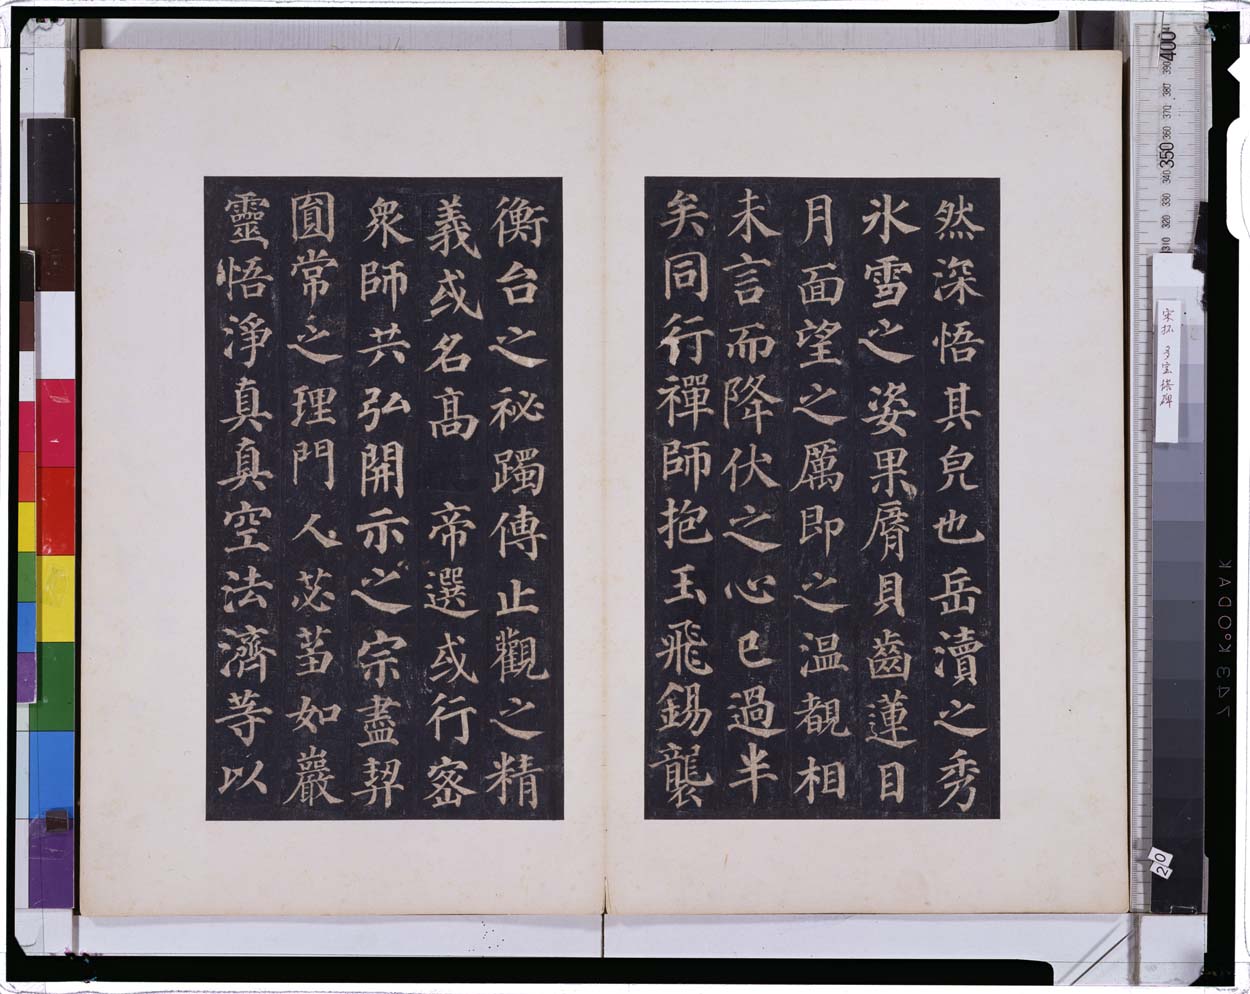 然深悟其皃也岳瀆之秀
氷雪之姿果脣貝齒蓮目
月面望之厲即之温覩相
未言而降伏之心巳過半
矣同行禪師抱玉飛錫襲
衡台之祕躅傳止觀之精
義或名高 帝選或行密
衆師共弘開示之宗盡契
圓常之理門人苾蒭如巖
靈悟淨真真空法濟等以
宋拓 多宝塔碑
400
390
380
370
360
350
340
330
320
310
20
743 KODAK